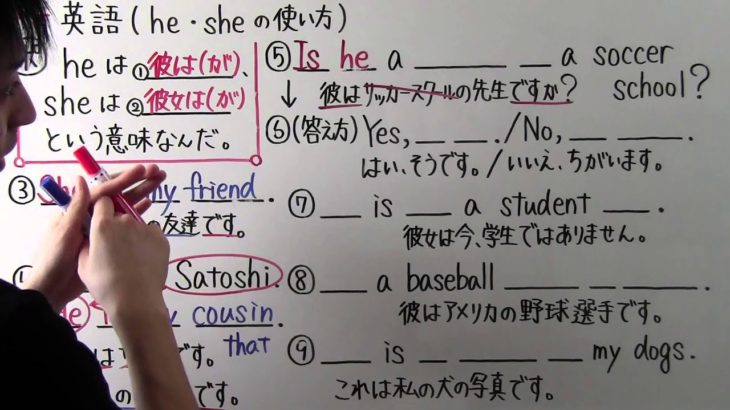 英語(he・sheの使い方)
he は ①彼は(が)、
she は ②彼女は(が)
という意味なんだ。
③ my friend.
の友達です。
Satoshi.
cousin.
です。that
の です。
⑤ Is he a ___ ___ a soccer school?
彼はサッカースクールの先生ですか?
⑥(答え方) Yes, ___ ___./No, ___ ___.
はい、そうです。/いいえ、ちがいます。
⑦ ___ is ___ a student ___.
彼女は今、学生ではありません。
⑧ ___ a baseball ___ ___ ___.
彼はアメリカの野球選手です。
⑨ ___ is ___ ___ ___ my dogs.
これは私の犬の写真です。